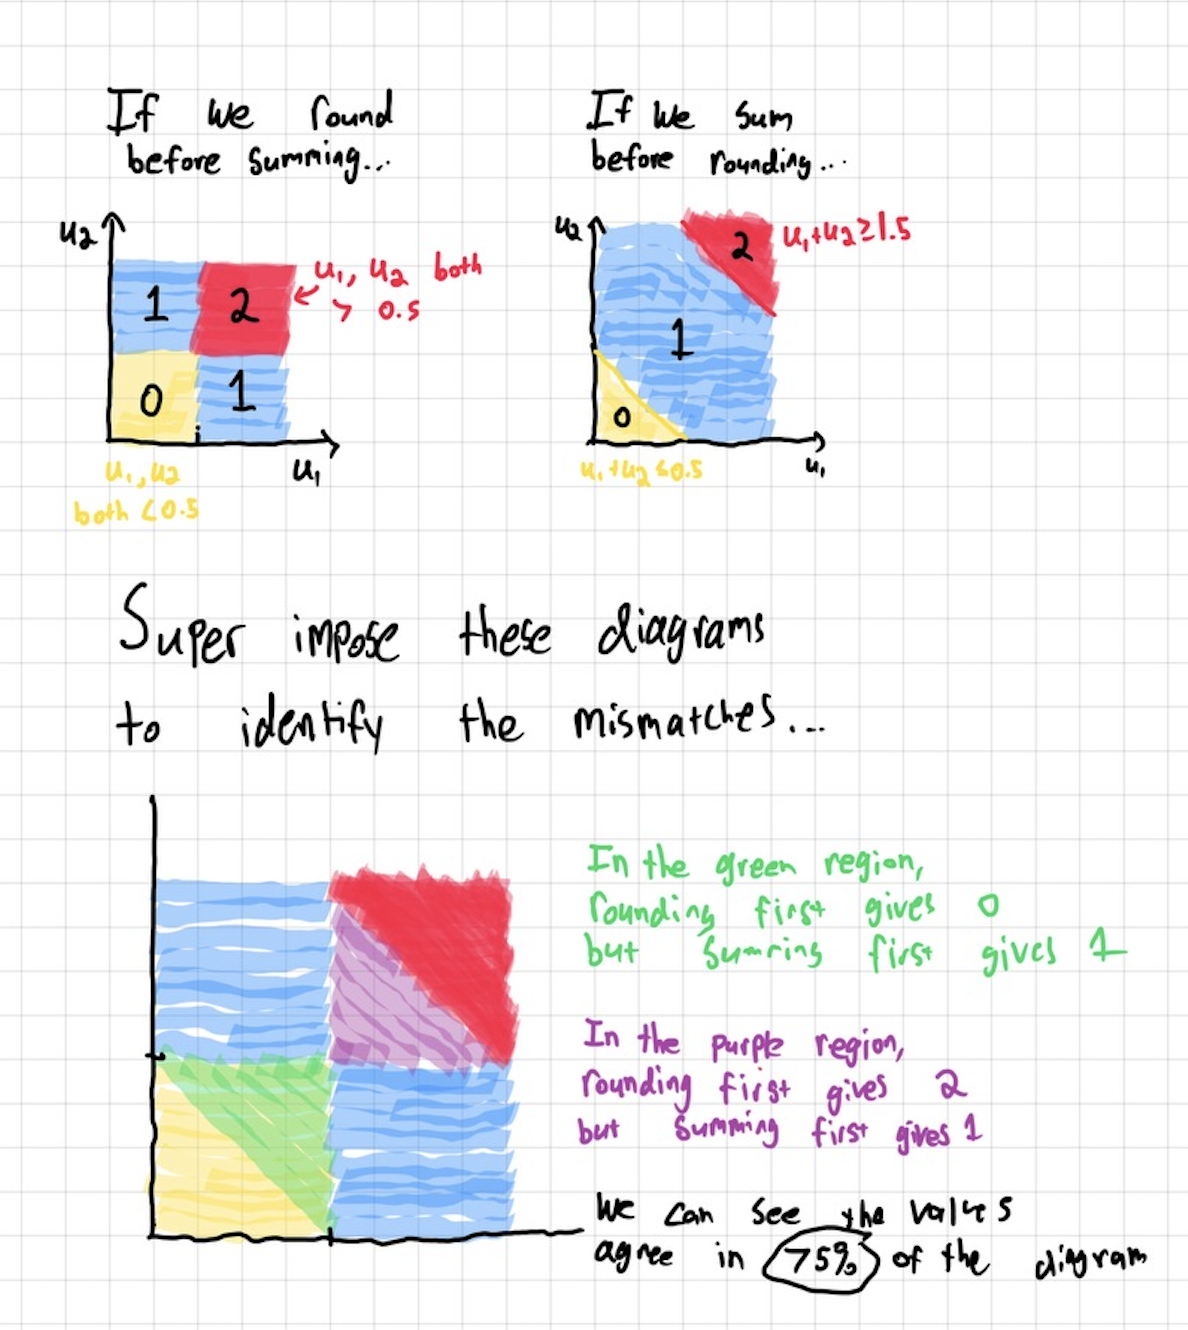 If we round
before summing...
u₂
1
2
u₁, u₂ both
> 0.5
0
1
u₁
u₁, u₂
both < 0.5
If we sum
before rounding...
u₂
2
u₁+u₂ ≥ 1.5
1
0
u₁
u₁+u₂ ≤ 0.5
Super impose these diagrams
to identify the mismatches...
In the green region,
rounding first gives 0
but summing first gives 1
In the purple region,
rounding first gives 2
but summing first gives 1
We can see the values
agree in 75% of the diagram